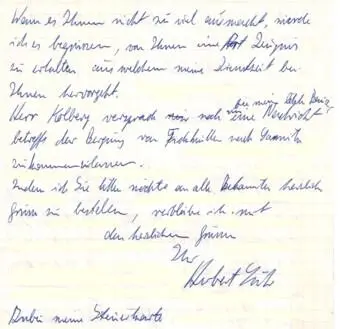 Wenn es Ihnen nicht zu viel ausmacht, würde
ich es begrüssen, von Ihnen eine Art Zeugnis
zu erhalten aus welchem meine Dienstzeit bei
Ihnen hervorgeht.
Herr Kolberg versprach mir noch eine Nachricht
betreffs der Bergung von nach
zukommenzulassen.
Indem ich Sie bitten möchte an alle Bekannten herzlich
Grüsse zu bestellen, verbleibe ich mit
den herzlichen Grüssen
Ihr
Herbert
Anbei meine Steuerkarte